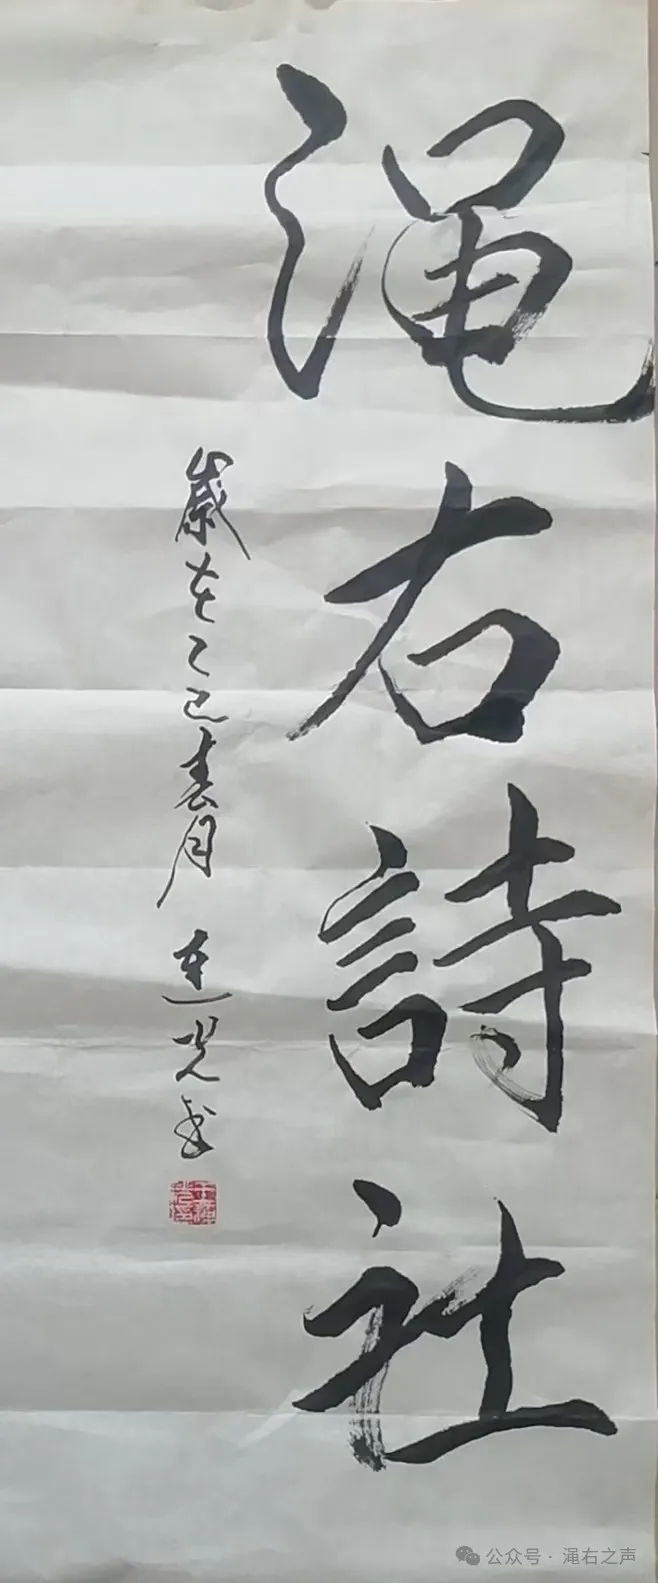 渑右詩社
歲在乙巳春月 連光書
公众号 · 渑右之声